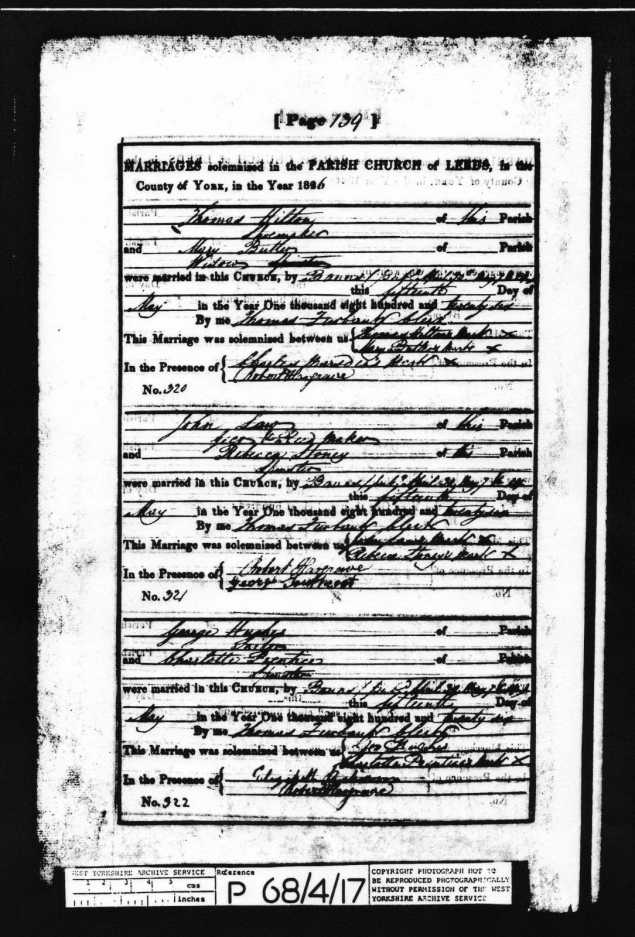 [ Page 739 ]
MARRIAGES solemnized in the PARISH CHURCH of LEEDS, in the
County of YORK, in the Year 1826
Thomas Hilton of this Parish
Shoemaker
and Mary Butler of Parish
Widow
were married in this CHURCH, by Banns
this fifteenth Day of
May in the Year One thousand eight hundred and twenty six
By me Thomas Furbank Clerk
This Marriage was solemnized between us { Thomas Hilton's Mark X
Mary Butler's Mark X
In the Presence of { Charles Mark X
Robert Hargrave
No. 320
John Law of this Parish
Maker
and Rebecca Stoney of this Parish
Spinster
were married in this CHURCH, by Banns
this fifteenth Day of
May in the Year One thousand eight hundred and twenty six
By me Thomas Furbank Clerk
This Marriage was solemnized between us { John Law's Mark X
Mark X
In the Presence of { Robert Hargrave
George
No. 321
George Hughes of Parish
and Charlotte Prentice of Parish
Spinster
were married in this CHURCH, by Banns
this fifteenth Day of
May in the Year One thousand eight hundred and twenty six
By me Thomas Furbank Clerk
This Marriage was solemnized between us { Geo Hughes
Charlotte Prentice's Mark X
In the Presence of { Elizabeth
Robert Hargrave
No. 322
WEST YORKSHIRE ARCHIVE SERVICE
1 2 3 4 5
cms
inches
Reference
P 68/4/17
COPYRIGHT PHOTOGRAPH NOT TO
BE REPRODUCED PHOTOGRAPHICALLY
WITHOUT PERMISSION OF THE WEST
YORKSHIRE ARCHIVE SERVICE